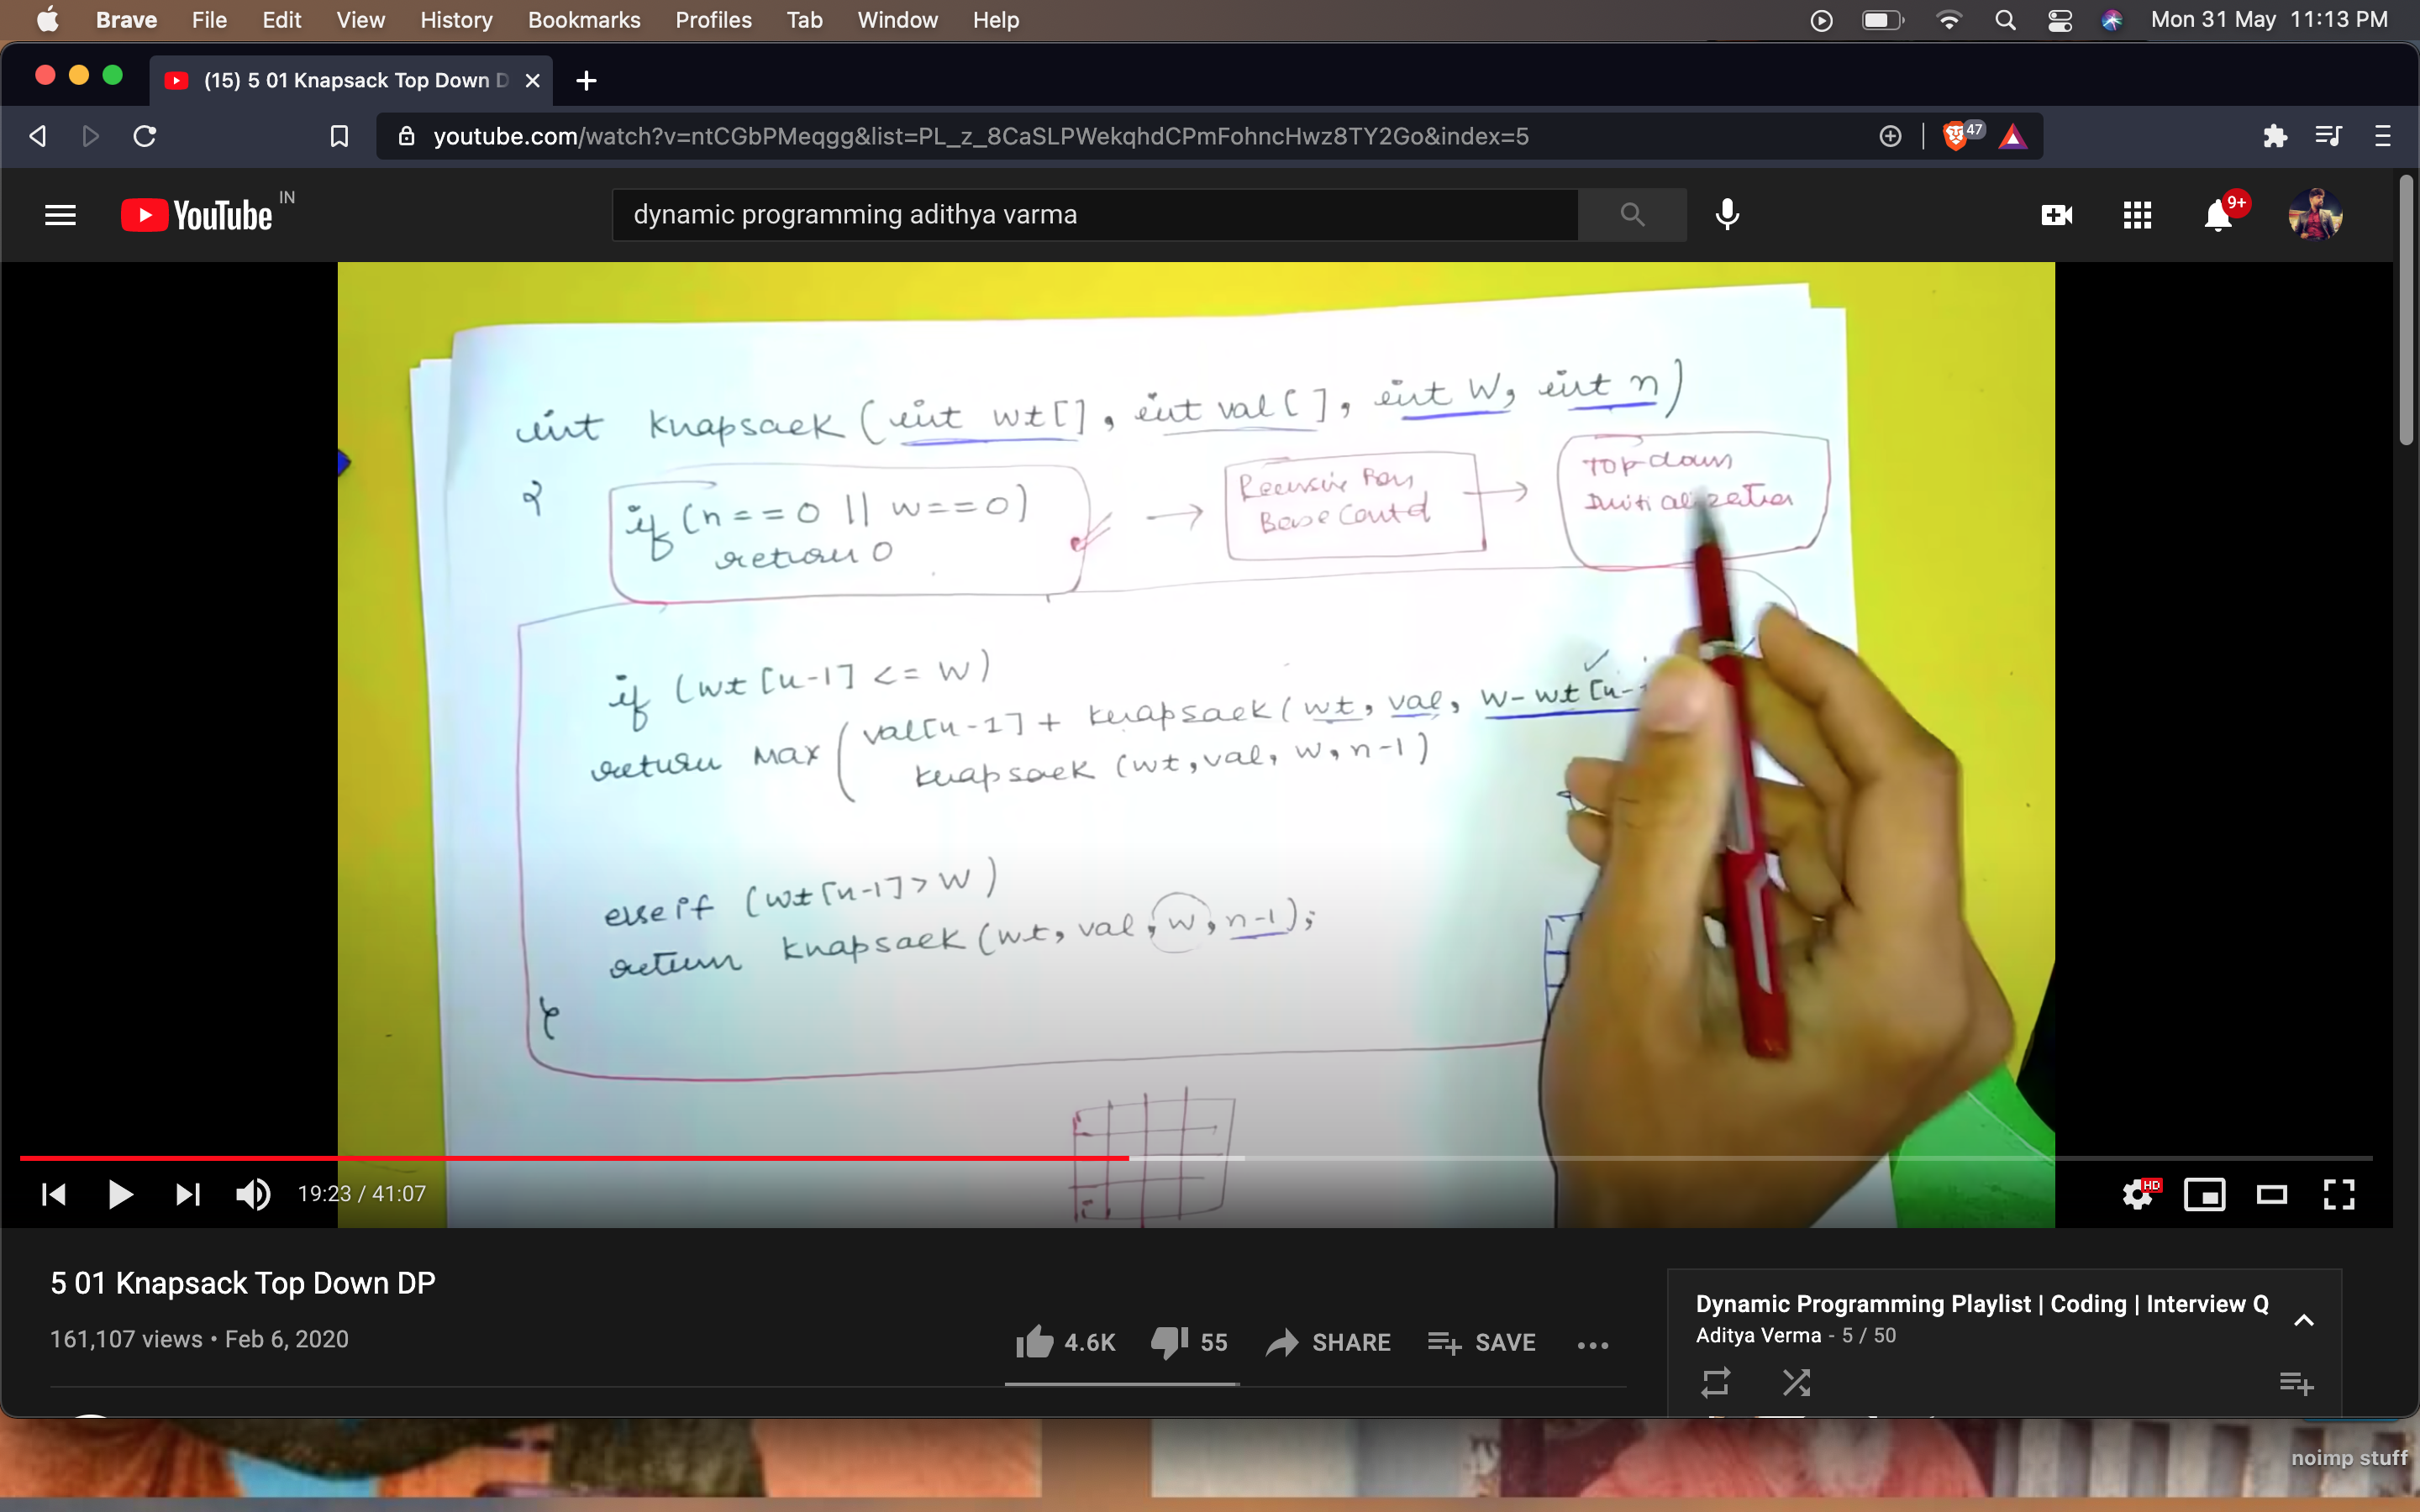 Brave File Edit View History Bookmarks Profiles Tab Window Help Mon 31 May 11:13 PM
(15) 5 01 Knapsack Top Down D
youtube.com/watch?v=ntCGbPMeqgg&list=PL_z_8CaSLPWekqhdCPmFohncHwz8TY2Go&index=5 47
YouTube IN dynamic programming adithya varma 9+
int knapsack (int wt[], int val[], int W, int n)
{
if (n==0 || w==0)
return 0
Recursive
Base Contd
Top down
Initialization
if (wt[n-1] <= W)
return Max ( val[n-1] + knapsack (wt, val, W-wt[n-
knapsack (wt, val, w, n-1)
else if (wt[n-1] > W)
return knapsack (wt, val, w, n-1);
}
19:23 / 41:07 HD
5 01 Knapsack Top Down DP
161,107 views • Feb 6, 2020
4.6K 55 SHARE SAVE
Dynamic Programming Playlist | Coding | Interview Q
Aditya Verma - 5 / 50
noimp stuff